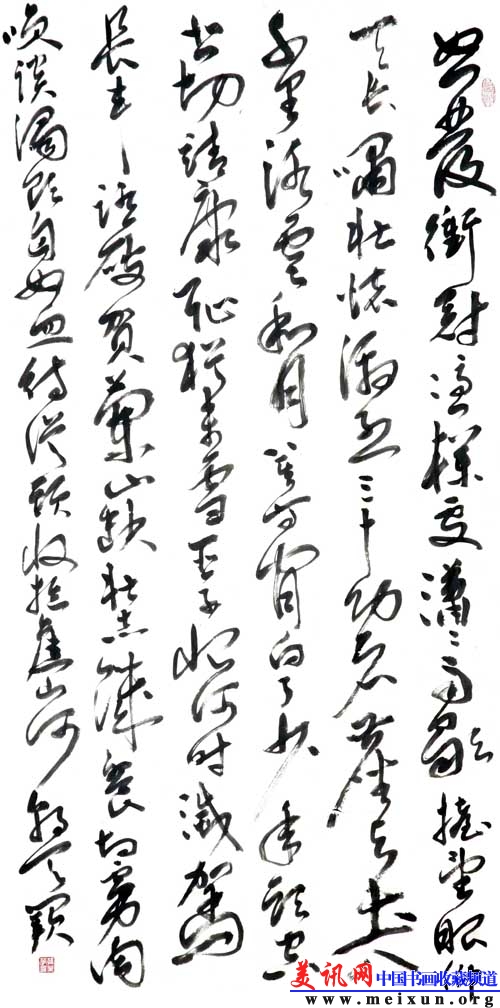 怒發衝冠憑欄處瀟瀟雨歇抬望眼仰
天長嘯壯懷激烈三十功名塵與土八
千里路雲和月莫等閒白了少年頭空
悲切靖康恥猶未雪臣子恨何時滅駕
長車踏破賀蘭山缺壯志饑餐胡虜肉
笑談渴飲匈奴血待從頭收拾舊山河朝天闕
美讯网 中国书画收藏频道
www.meixun.org